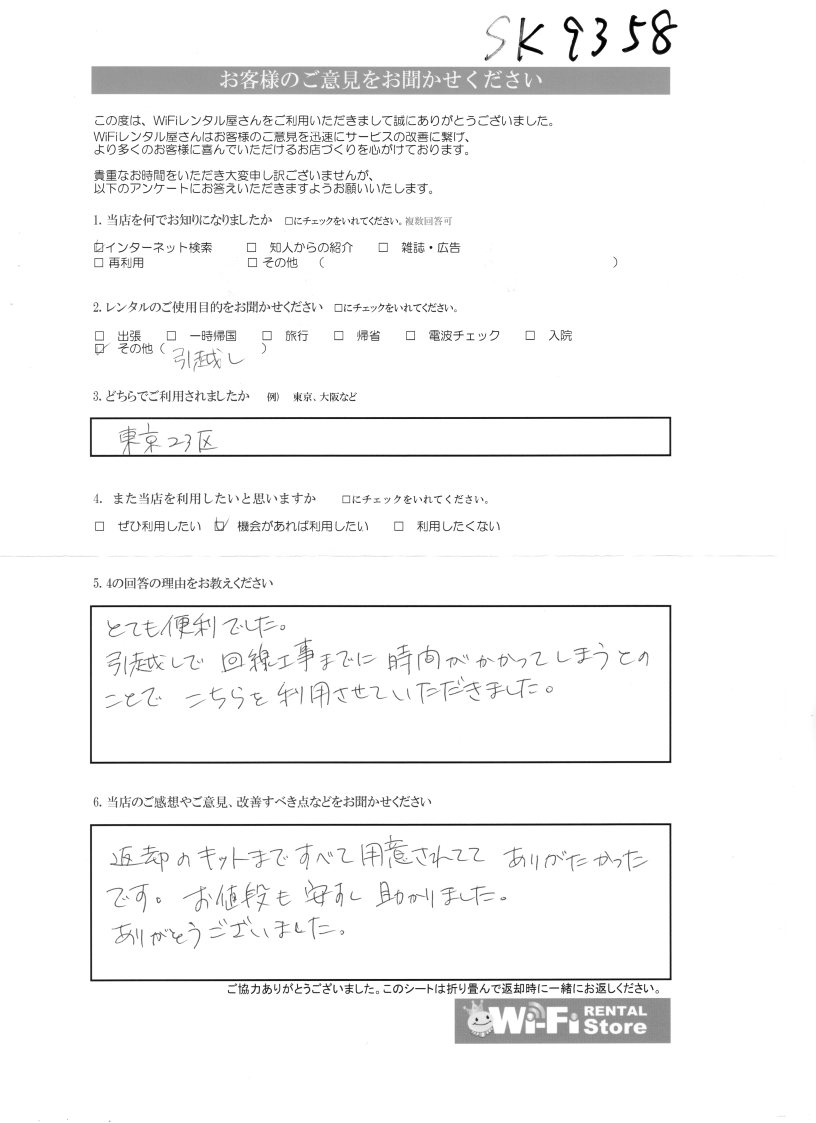 SK9358
お客様のご意見をお聞かせください
この度は、WiFiレンタル屋さんをご利用いただきまして誠にありがとうございました。
WiFiレンタル屋さんはお客様のご意見を迅速にサービスの改善に繋げ、
より多くのお客様に喜んでいただけるお店づくりを心がけております。
貴重なお時間をいただき大変申し訳ございませんが、
以下のアンケートにお答えいただきますようお願いいたします。
1. 当店を何でお知りになりましたか □にチェックをいれてください。複数回答可
☑インターネット検索 □ 知人からの紹介 □ 雑誌・広告
□ 再利用 □ その他 ( )
2. レンタルのご使用目的をお聞かせください □にチェックをいれてください。
□ 出張 □ 一時帰国 □ 旅行 □ 帰省 □ 電波チェック □ 入院
☑ その他 ( 引越し )
3. どちらでご利用されましたか 例) 東京、大阪など
東京23区
4. また当店を利用したいと思いますか □にチェックをいれてください。
□ ぜひ利用したい ☑ 機会があれば利用したい □ 利用したくない
5. 4の回答の理由をお教えください
とても便利でした。
引越しで 回線工事までに 時間がかかってしまうとの
ことで こちらを利用させていただきました。
6. 当店のご感想やご意見、改善すべき点などをお聞かせください
返却のキットまですべて用意されてて ありがたかった
です。お値段も 安すし 助かりました。
ありがとうございました。
ご協力ありがとうございました。このシートは折り畳んで返却時に一緒にお返しください。
Wi-Fi RENTAL Store